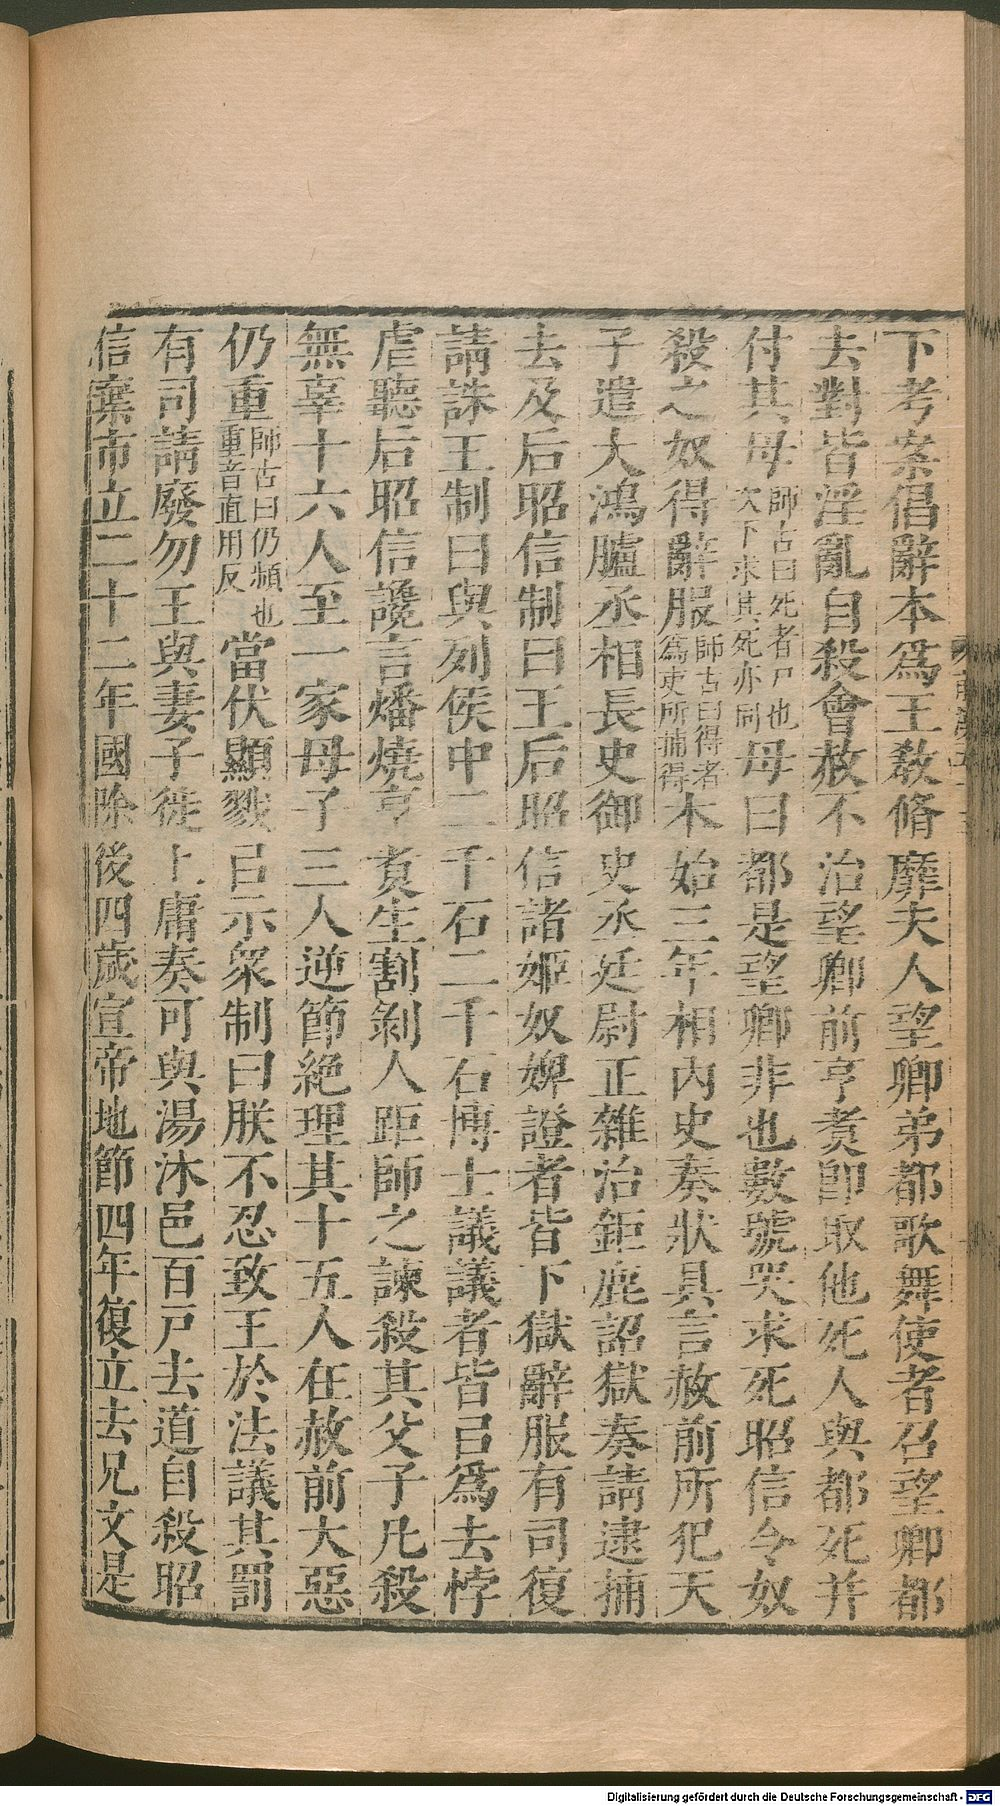 下考案倡辭本爲王敎脩靡夫人望卿弟都歌舞使者召望卿都
去對皆淫亂自殺會赦不治望卿前亨煑卽取他死人與都死并
付其母師古曰死者尸也次下求其死亦同母曰都是望卿非也數號哭求死昭信令奴
殺之奴得辭服師古曰得者爲吏所捕得本始三年相內史奏狀具言赦前所犯天
子遣大鴻臚丞相長史御史丞廷尉正雜治鉅鹿詔獄奏請逮捕
去及后昭信制曰王后昭信諸姬奴婢證者皆下獄辭服有司復
請誅王制曰與列侯中二千石二千石博士議議者皆㠯爲去悖
虐聽后昭信讒言燔燒亨煑生割剝人距師之諫殺其父子凡殺
無辜十六人至一家母子三人逆節絶理其十五人在赦前大惡
仍重師古曰仍頻也重音直用反當伏顯戮㠯示衆制曰朕不忍致王於法議其罰
有司請廢勿王與妻子徙上庸奏可與湯沐邑百戶去道自殺昭
信棄市立二十二年國除後四歲宣帝地節四年復立去兄文是
Digitalisierung gefördert durch die Deutsche Forschungsgemeinschaft - DFG